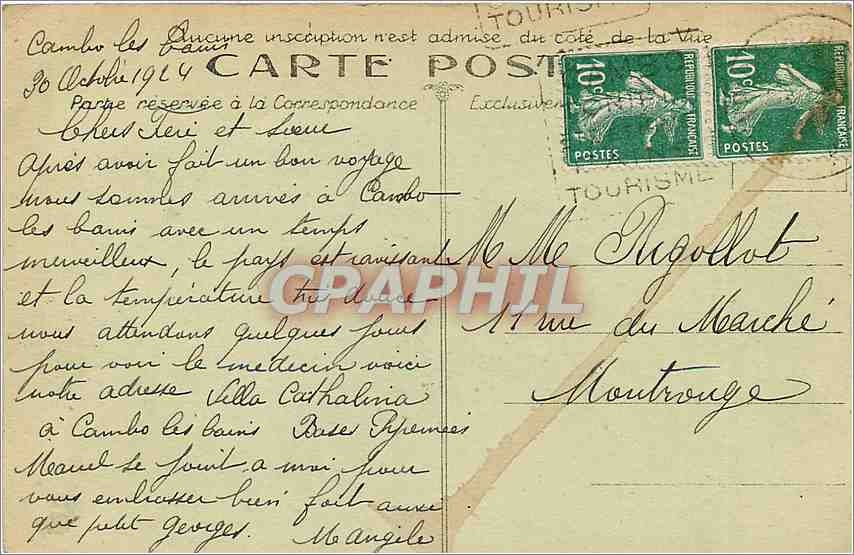 TOURISME
Aucune inscription n'est admise du côté de la Vue
CARTE POST
Partie réservée à la Correspondance
Exclusivem
Cambo les bains
30 Octobre 1924
Chers Frère et Sœur
Après avoir fait un bon voyage
nous sommes arrivés à Cambo
les bains avec un temps
merveilleux, le pays est ravissant
et la température très douce
nous attendons quelques jours
pour voir le medecin voici
notre adresse Villa Cathalina
à Cambo les bains Basses Pyrennées
Marcel se joint a moi pour
vous embrasser bien fort aussi
que petit Georges. M Angèle
10c
REPUBLIQUE FRANÇAISE
POSTES
10c
REPUBLIQUE FRANÇAISE
POSTES
TOURISME
M M Rigollot
11 rue du Marché
Montrouge
CPAPHIL